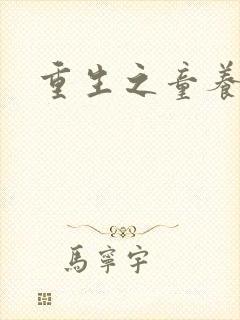 重生之童養
馬寧宇